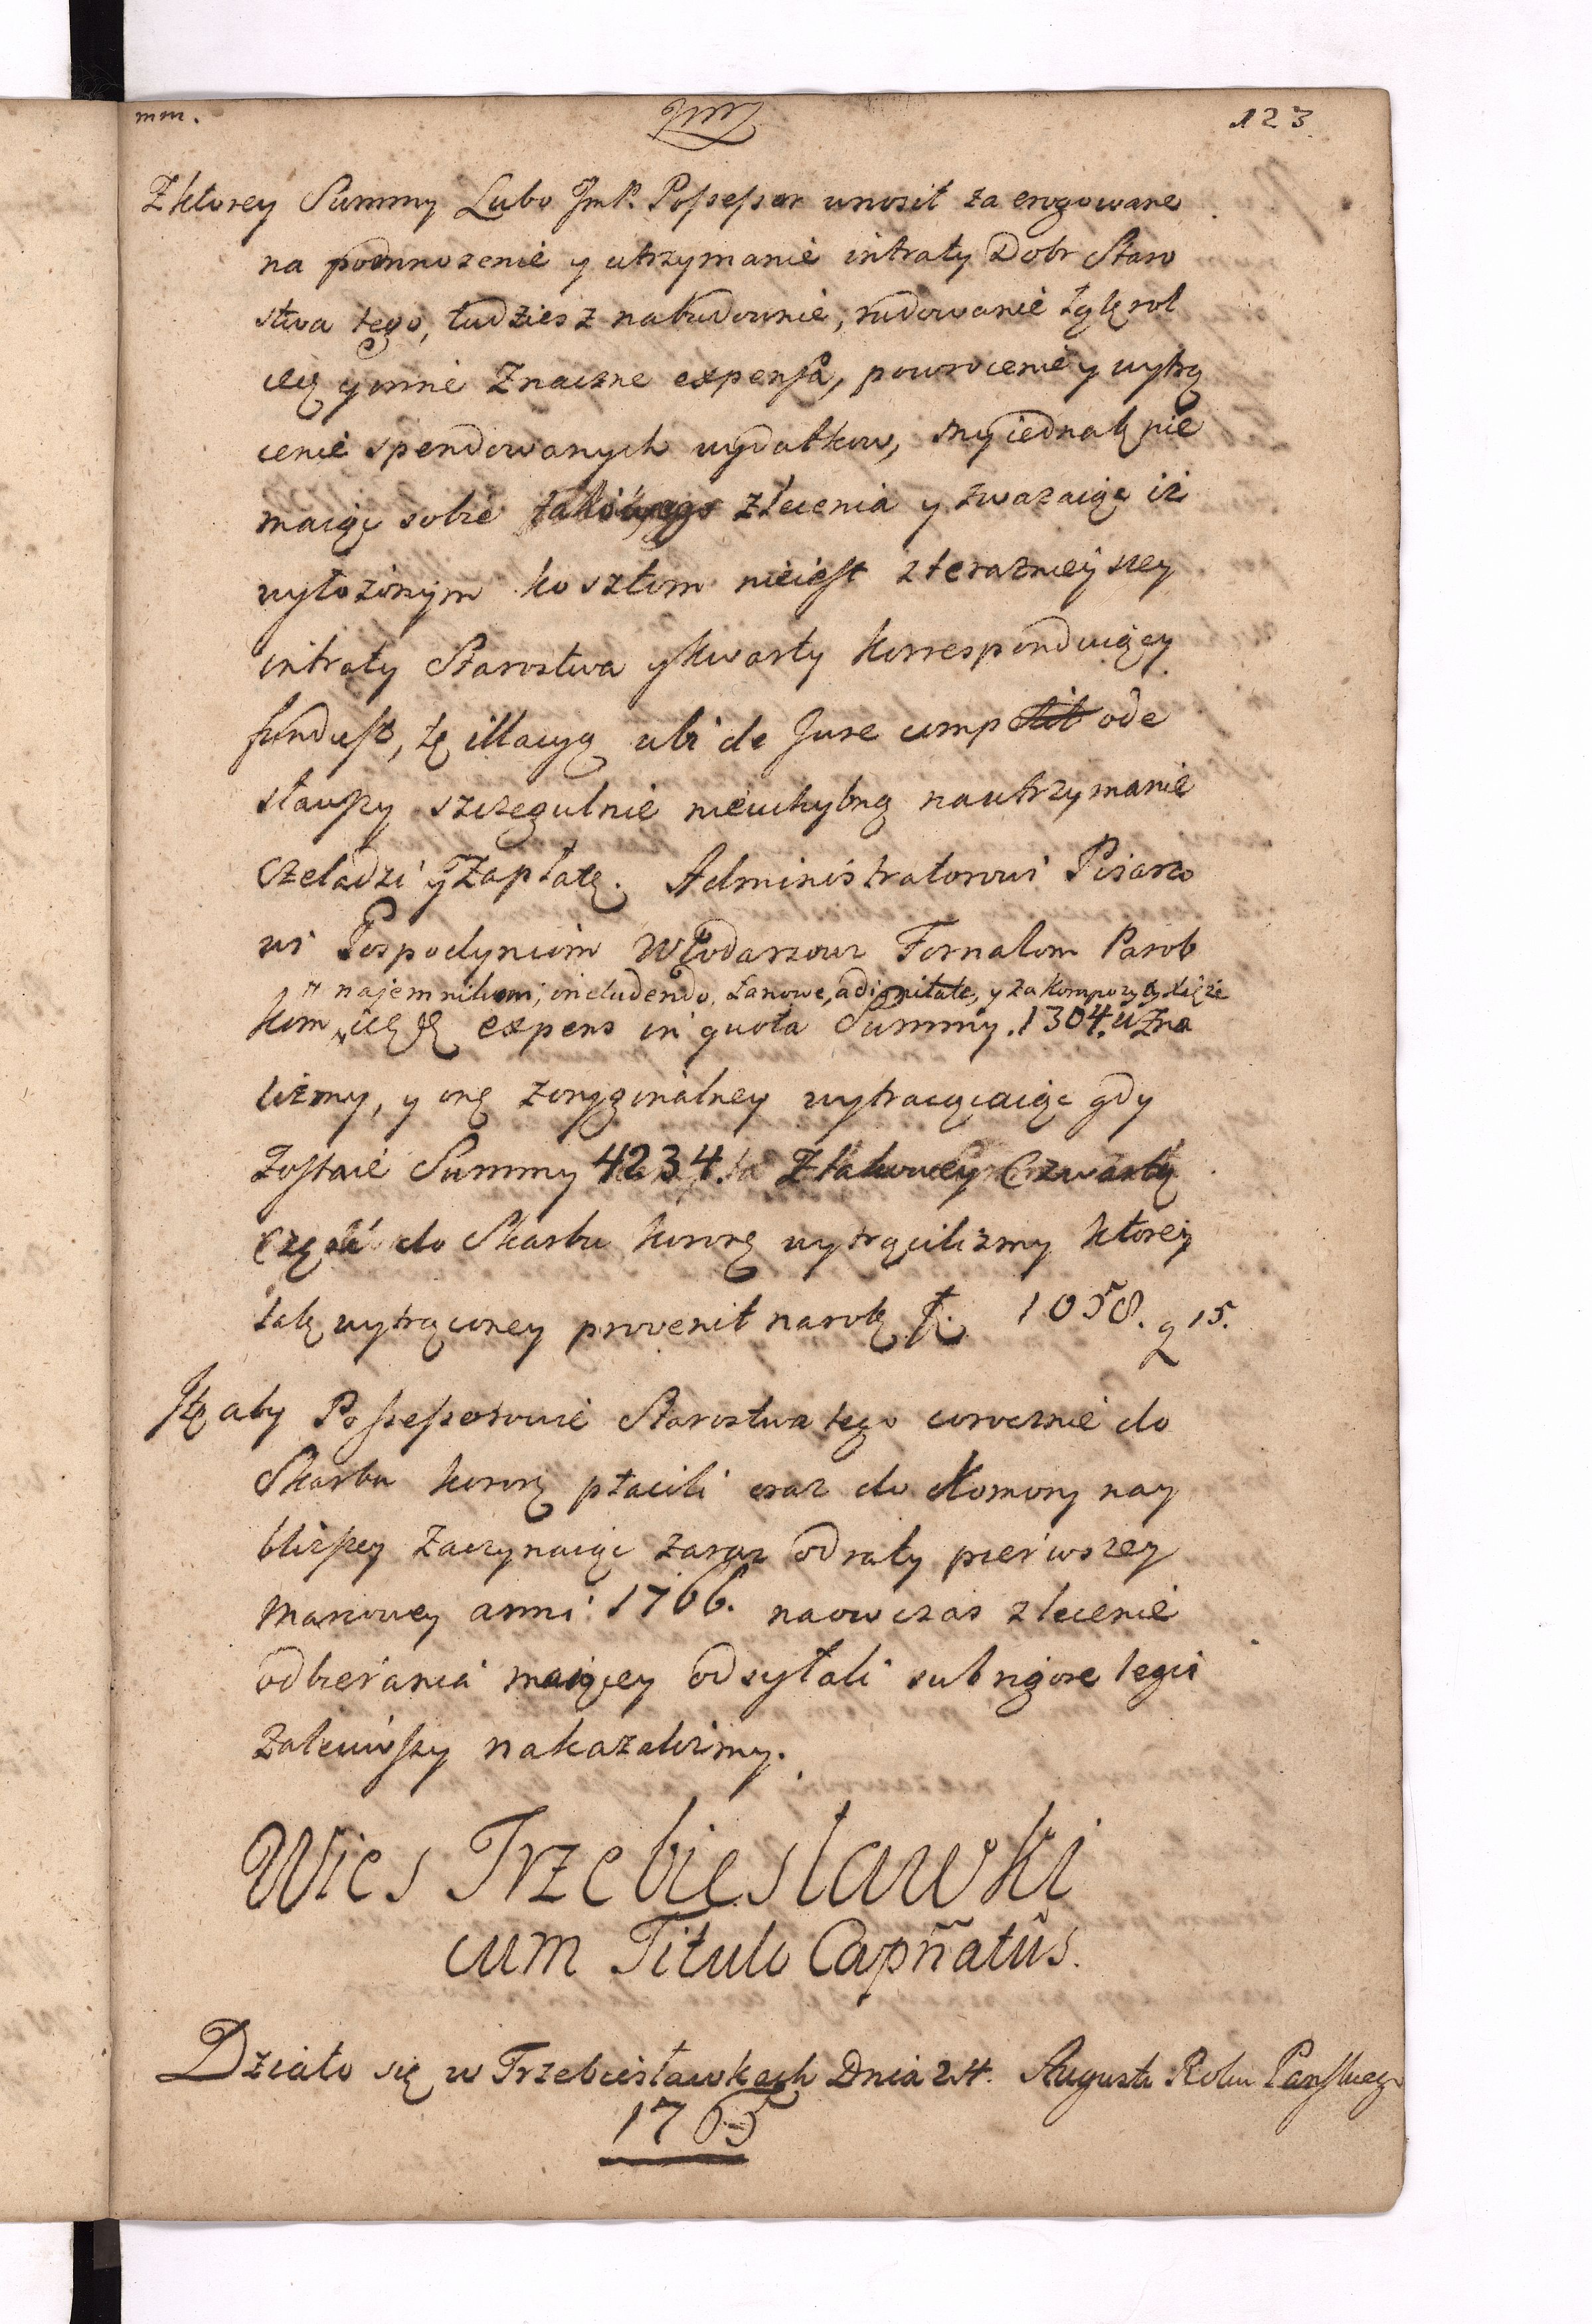 mm.
123
Z ktorey Summy Lubo JmP. Possessor unosił za erogowane
na pomnozenie y utrzymanie intraty Dobr Staro
stwa tego, tudziesz nabudownie, rudowanie łąk rol
etc y inne Znaczne expensa, powrocenie y wytrą
cenie spendowanych wydatkow, my iednak nie
maiąc sobie takowego zlecenia y zwazaiąc iż
wyłożonym kosztom nieiest z terazneyszey
intraty Starostwa y kwarty korrespondujący
fundusz, tę illacyą ubi de Jure comp ode
sławszy szczegulnie nieuchybną na utrzymanie
Czeladzi y Zapłatę. Administratorowi Pisarzo
wi Gospodyniom Włodarzowi Fornalom Parob
najemnikom, includendo, Łanowe, a dignitate, y za kompozytą Xięże
kom etc expens in quota Summy. 1304. uzna
lismy, y onę z oryginalney wytrącaiąc gdy
Zostaie Summy 4234. ta Ztakowey Czwartą
Część do Skarbu koronę wytrąciliżmy ktorey
tak wytrąconey provenit na rok 1058. g 15.
Jtę aby Possessorowie Starostwa tego corocznie do
Skarbu koronę płacili oraz do Komory nay
bliższey Zaczynaiąc zaraz od raty pierwszey
marcowey anni 1766. naowczas zlecenie
odbierania maiącey odsyłali sub rigore legis
zaleciwszy nakazalismy.
Wies Trzebiesławki
cum Titulo Capñatûs.
Działo się w Trzebiesławkach Dnia 24. Augusta Roku Panskiego
1765